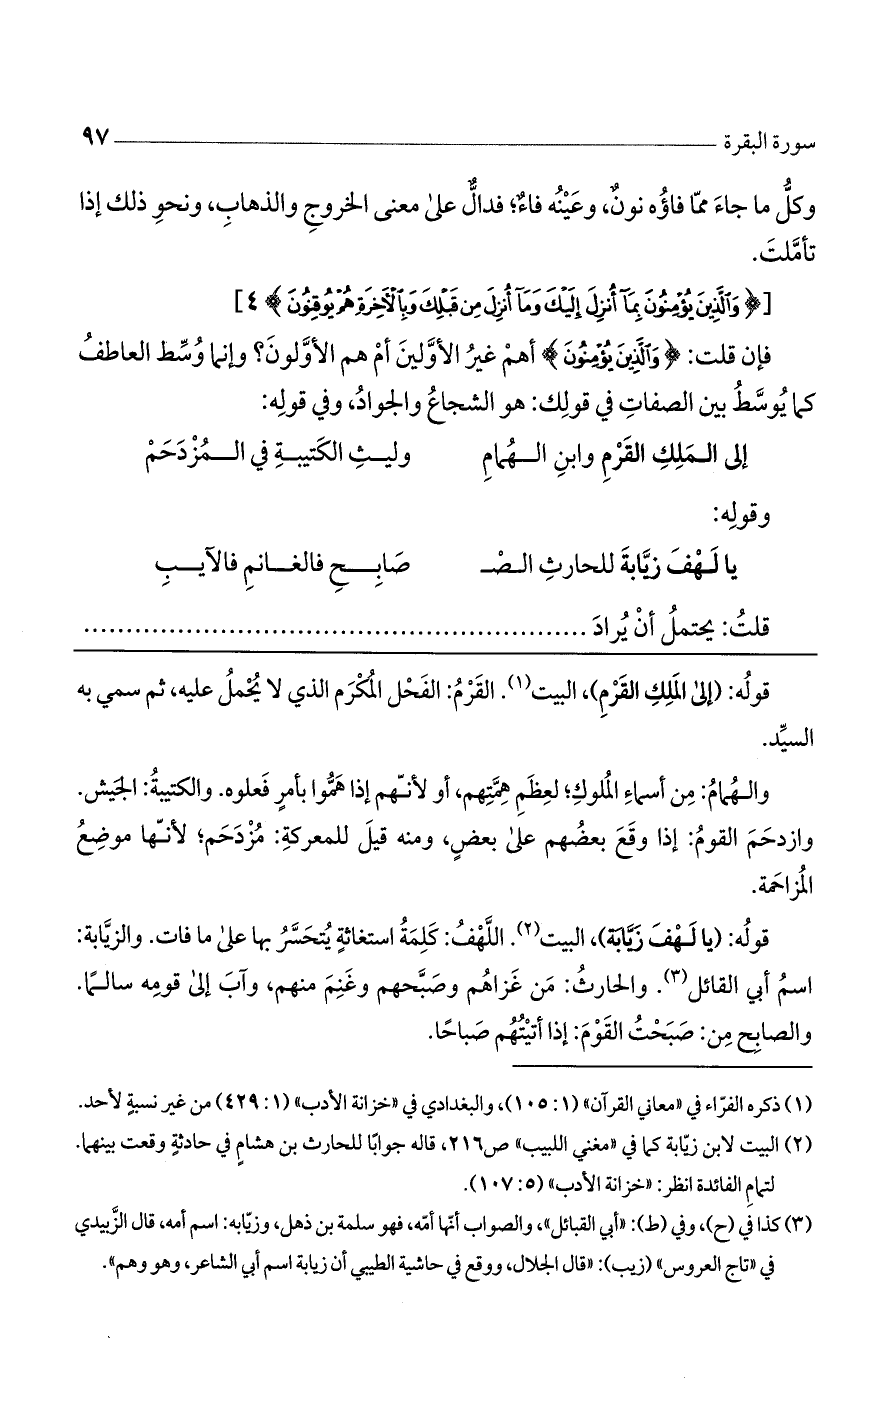 سورة البقرة ٩٧
وكلُّ ما جاءَ ممّا فاؤُه نونٌ، وعَيْنُه فاءٌ؛ فدالٌّ علىٰ معنى الخروجِ والذهابِ، ونحوِ ذلك إذا
تأمَّلتَ.
[﴿ وَٱلَّذِينَ يُؤْمِنُونَ بِمَآ أُنزِلَ إِلَيْكَ وَمَآ أُنزِلَ مِن قَبْلِكَ وَبِٱلْأَخِرَةِ هُمْ يُوقِنُونَ ﴾ ٤]
فإن قلت: ﴿ وَٱلَّذِينَ يُؤْمِنُونَ ﴾ أهمْ غيرُ الأوَّلينَ أمْ هم الأوَّلونَ؟ وإنما وُسِّط العاطفُ
كما يُوسَّطُ بين الصفاتِ في قولِك: هو الشجاعُ والجوادُ، وفي قولِه:
إلى المَلِكِ القَرْمِ وابنِ الهُمامِ وليثِ الكَتيبةِ في المُزْدَحَمْ
وقولِه:
يا لَهْفَ زيَّابةَ للحارثِ الصـْ صَابِحِ فالغانمِ فالآيبِ
قلتُ: يحتملُ أنْ يُرادَ ............................................................
قولُه: (إلىٰ المَلِكِ القَرْمِ)، البيت(١). القَرْمُ: الفَحْل المُكْرَم الذي لا يُحْملُ عليه، ثم سمي به
السيِّد.
والهُمامُ: مِن أسماءِ المُلوكِ؛ لعِظَمِ هِمَّتِهم، أو لأنّهم إذا هَمُّوا بأمرٍ فَعلوه. والكتيبةُ: الجَيش.
وازدحَمَ القومُ: إذا وقَعَ بعضُهم علىٰ بعضٍ، ومنه قيلَ للمعركةِ: مُزْدَحَم؛ لأنّها موضِعُ
المُزاحَمة.
قولُه: (يا لَهْفَ زَيَّابَة)، البيت(٢). اللَّهْفُ: كَلِمَةُ استغاثةٍ يُتحَسَّرُ بها علىٰ ما فات. والزيَّابة:
اسمُ أبي القائل(٣). والحارثُ: مَن غَزاهُم وصَبَّحهم وغَنِمَ منهم، وآبَ إلىٰ قومِه سالمًا.
والصابِح مِن: صَبَحْتُ القَوْمَ: إذا أتيْتُهُم صَباحًا.
(١) ذكره الفرّاء في «معاني القرآن» (١: ١٠٥)، والبغدادي في «خزانة الأدب» (١: ٤٢٩) من غير نسبةٍ لأحد.
(٢) البيت لابن زيّابة كما في «مغني اللبيب» ص٢١٦، قاله جوابًا للحارث بن هشامٍ في حادثةٍ وقعت بينهما.
لتمامِ الفائدة انظر: «خزانة الأدب» (٥: ١٠٧).
(٣) كذا في (ح)، وفي (ط): «أبي القبائل»، والصواب أنّها أمّه، فهو سلمة بن ذهل، وزيّابه: اسم أمه، قال الزَّبيدي
في «تاج العروس» (زيب): «قال الجلال، ووقع في حاشية الطيبي أن زيابة اسم أبي الشاعر، وهو وهم».